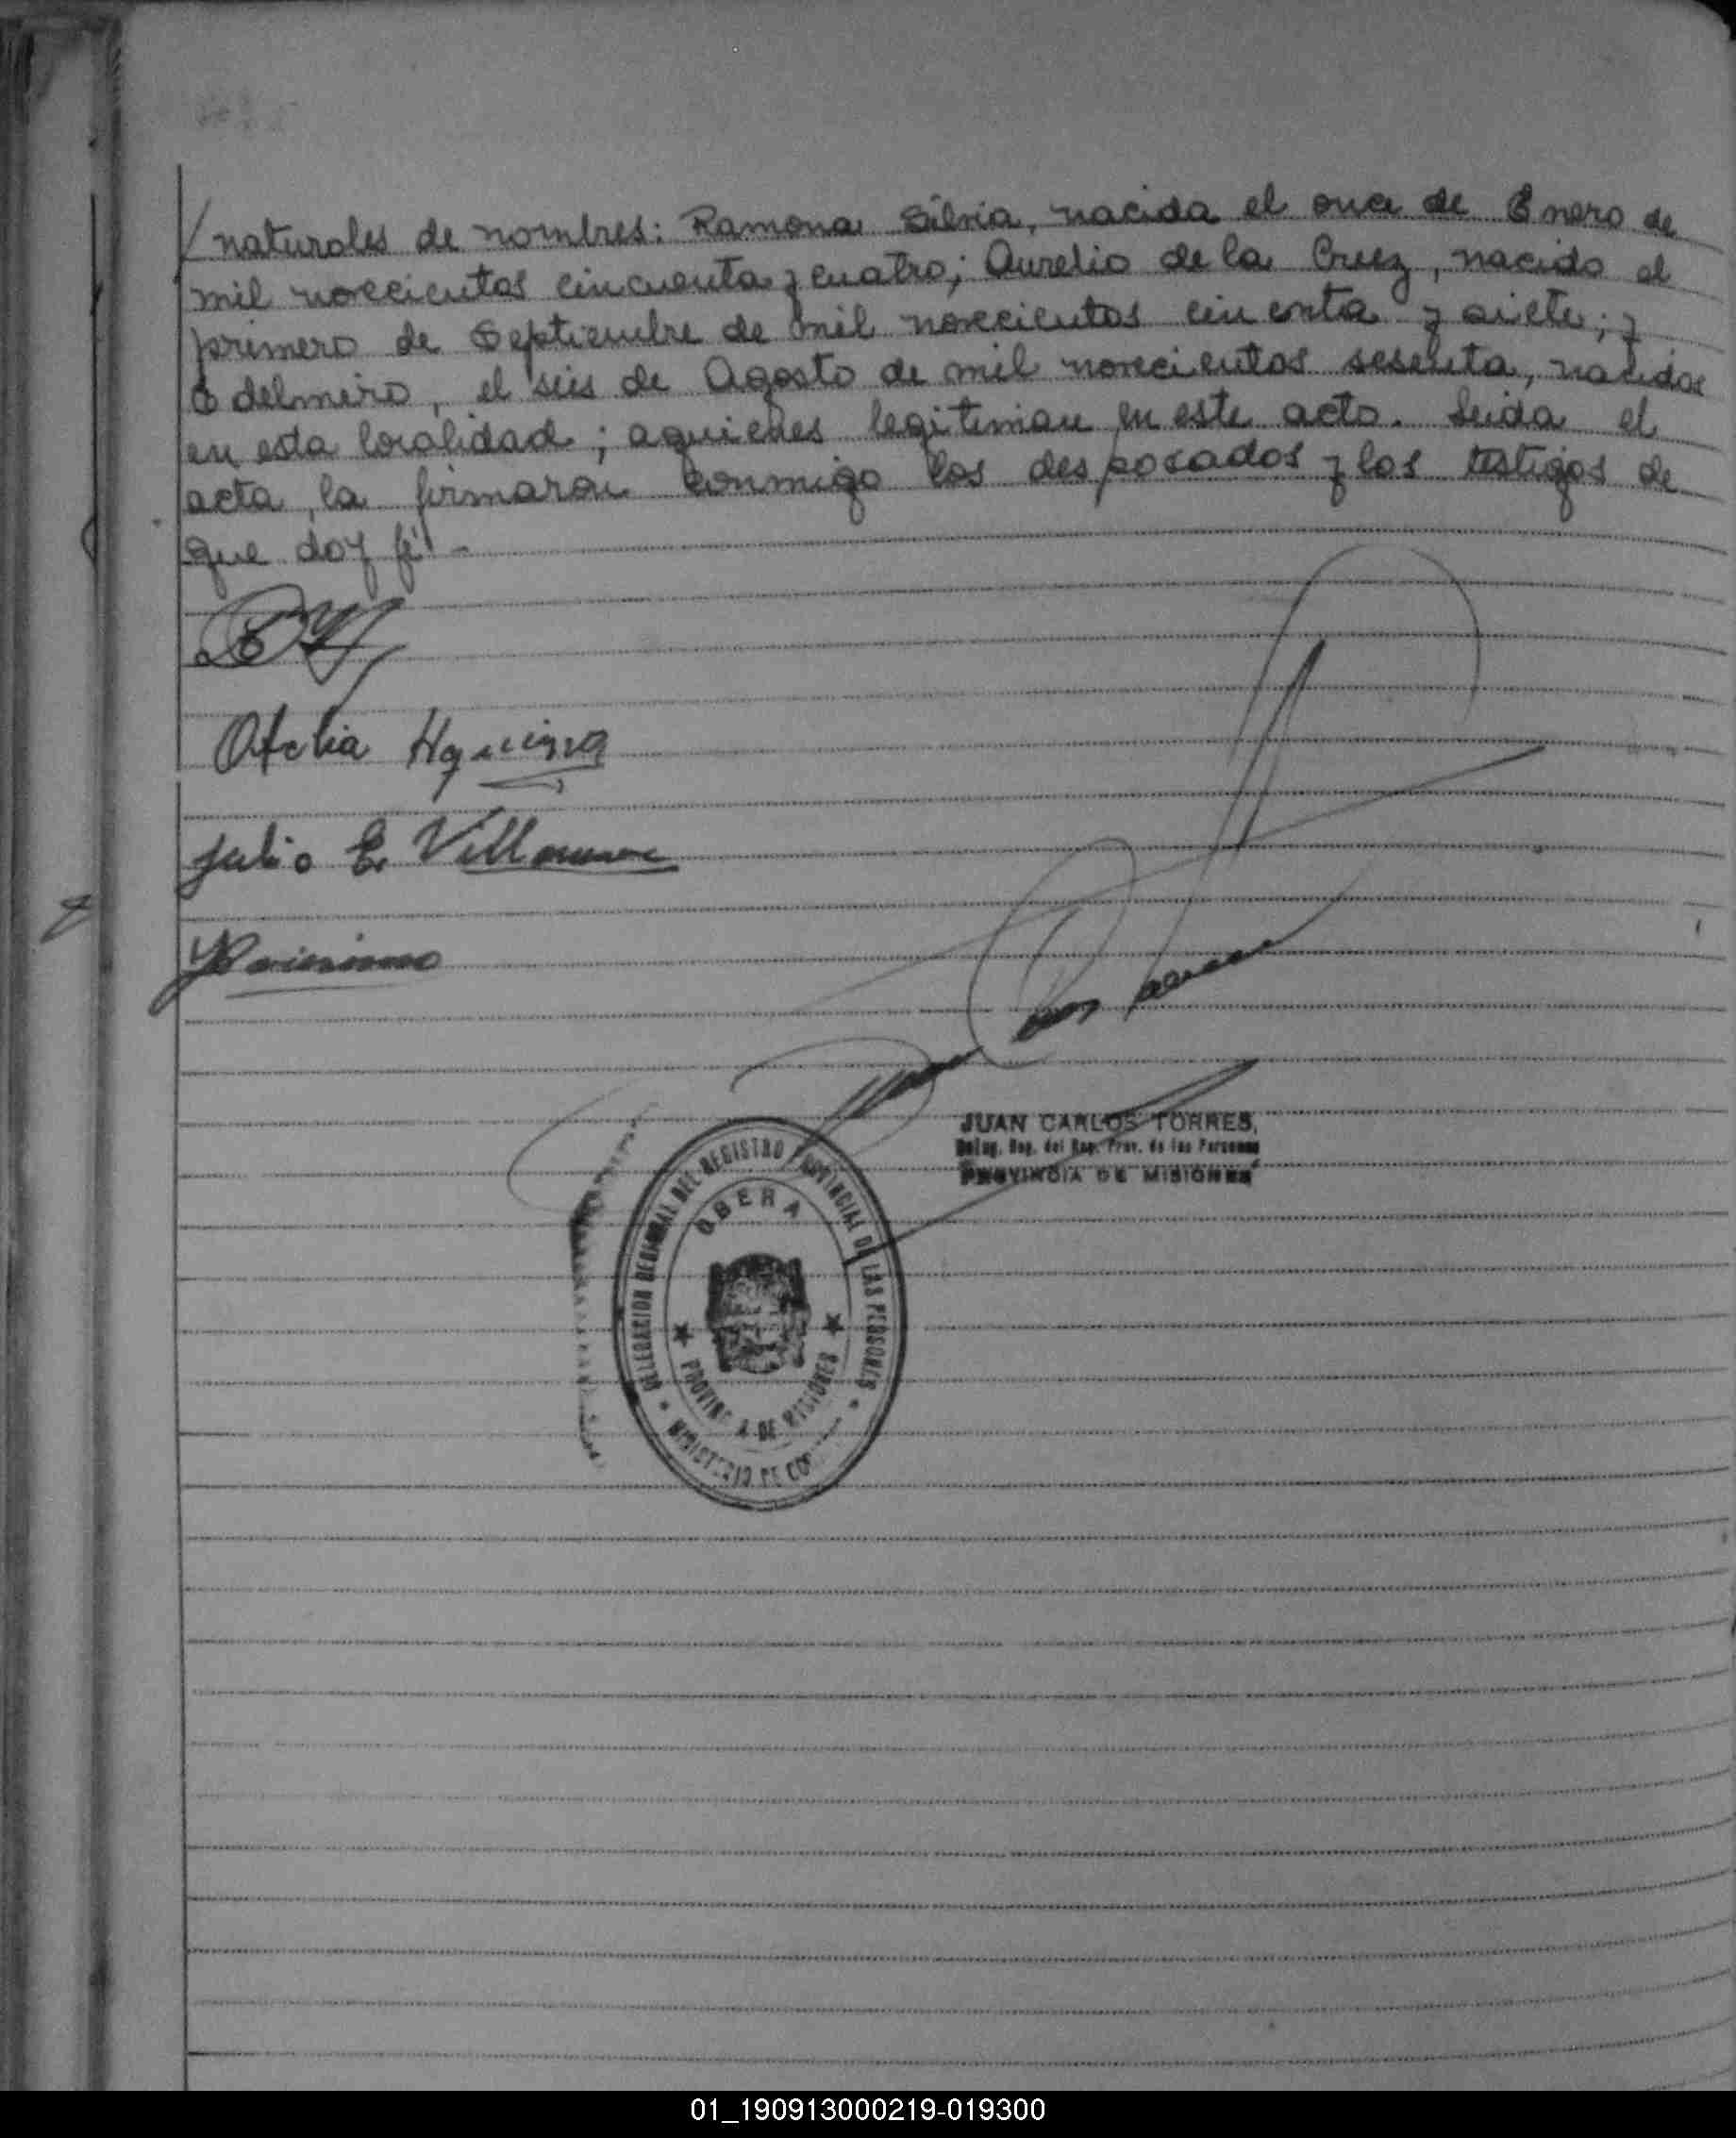 / naturales de nombres: Ramona Silvia, nacida el once de Enero de
mil novecientos cincuenta y cuatro; Aurelio de la Cruz, nacido el
primero de Septiembre de mil novecientos cincenta y siete; y
Edelmiro, el seis de Agosto de mil novecientos sesenta, nacidos
en esta localidad; aquienes legitiman en este acto. Leida el
acta, la firmaron conmigo los desposados y los testigos de
que doy fé -
Ofelia
Julio E. Villa
JUAN CARLOS TORRES,
Deleg. Reg. del Reg. Prov. de las Personas
PROVINCIA DE MISIONES
DELEGACION REGIONAL DEL REGISTRO PROVINCIAL DE LAS PERSONAS
OBERA
PROVINC A DE MISIONES
MINISTERIO DE
01_190913000219-019300